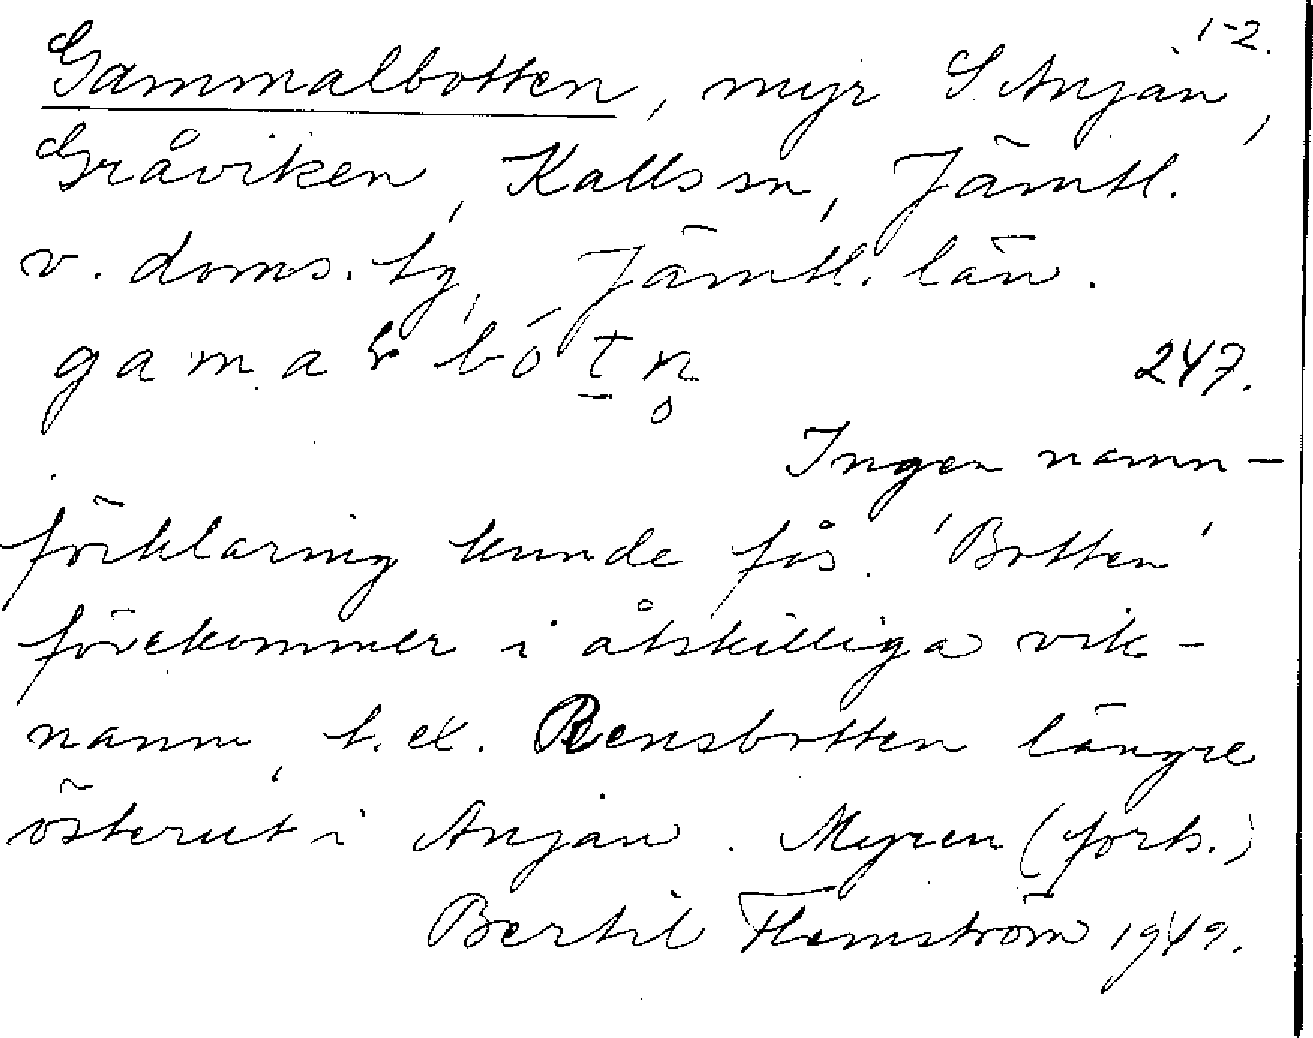 1-2.
Gammalbotten, myr S Anjan,
Gråviken, Kalls sn, Jämtl.
v. doms. tg, Jämtl. län.
gamaḷ bót̠n̥ 247.
Ingen namn-
förklaring kunde fås. 'Botten'
förekommer i åtskilliga vik-
namn, t.ex. Rensbotten längre
österut i Anjan. Myren (forts.)
Bertil Flemström 1949.